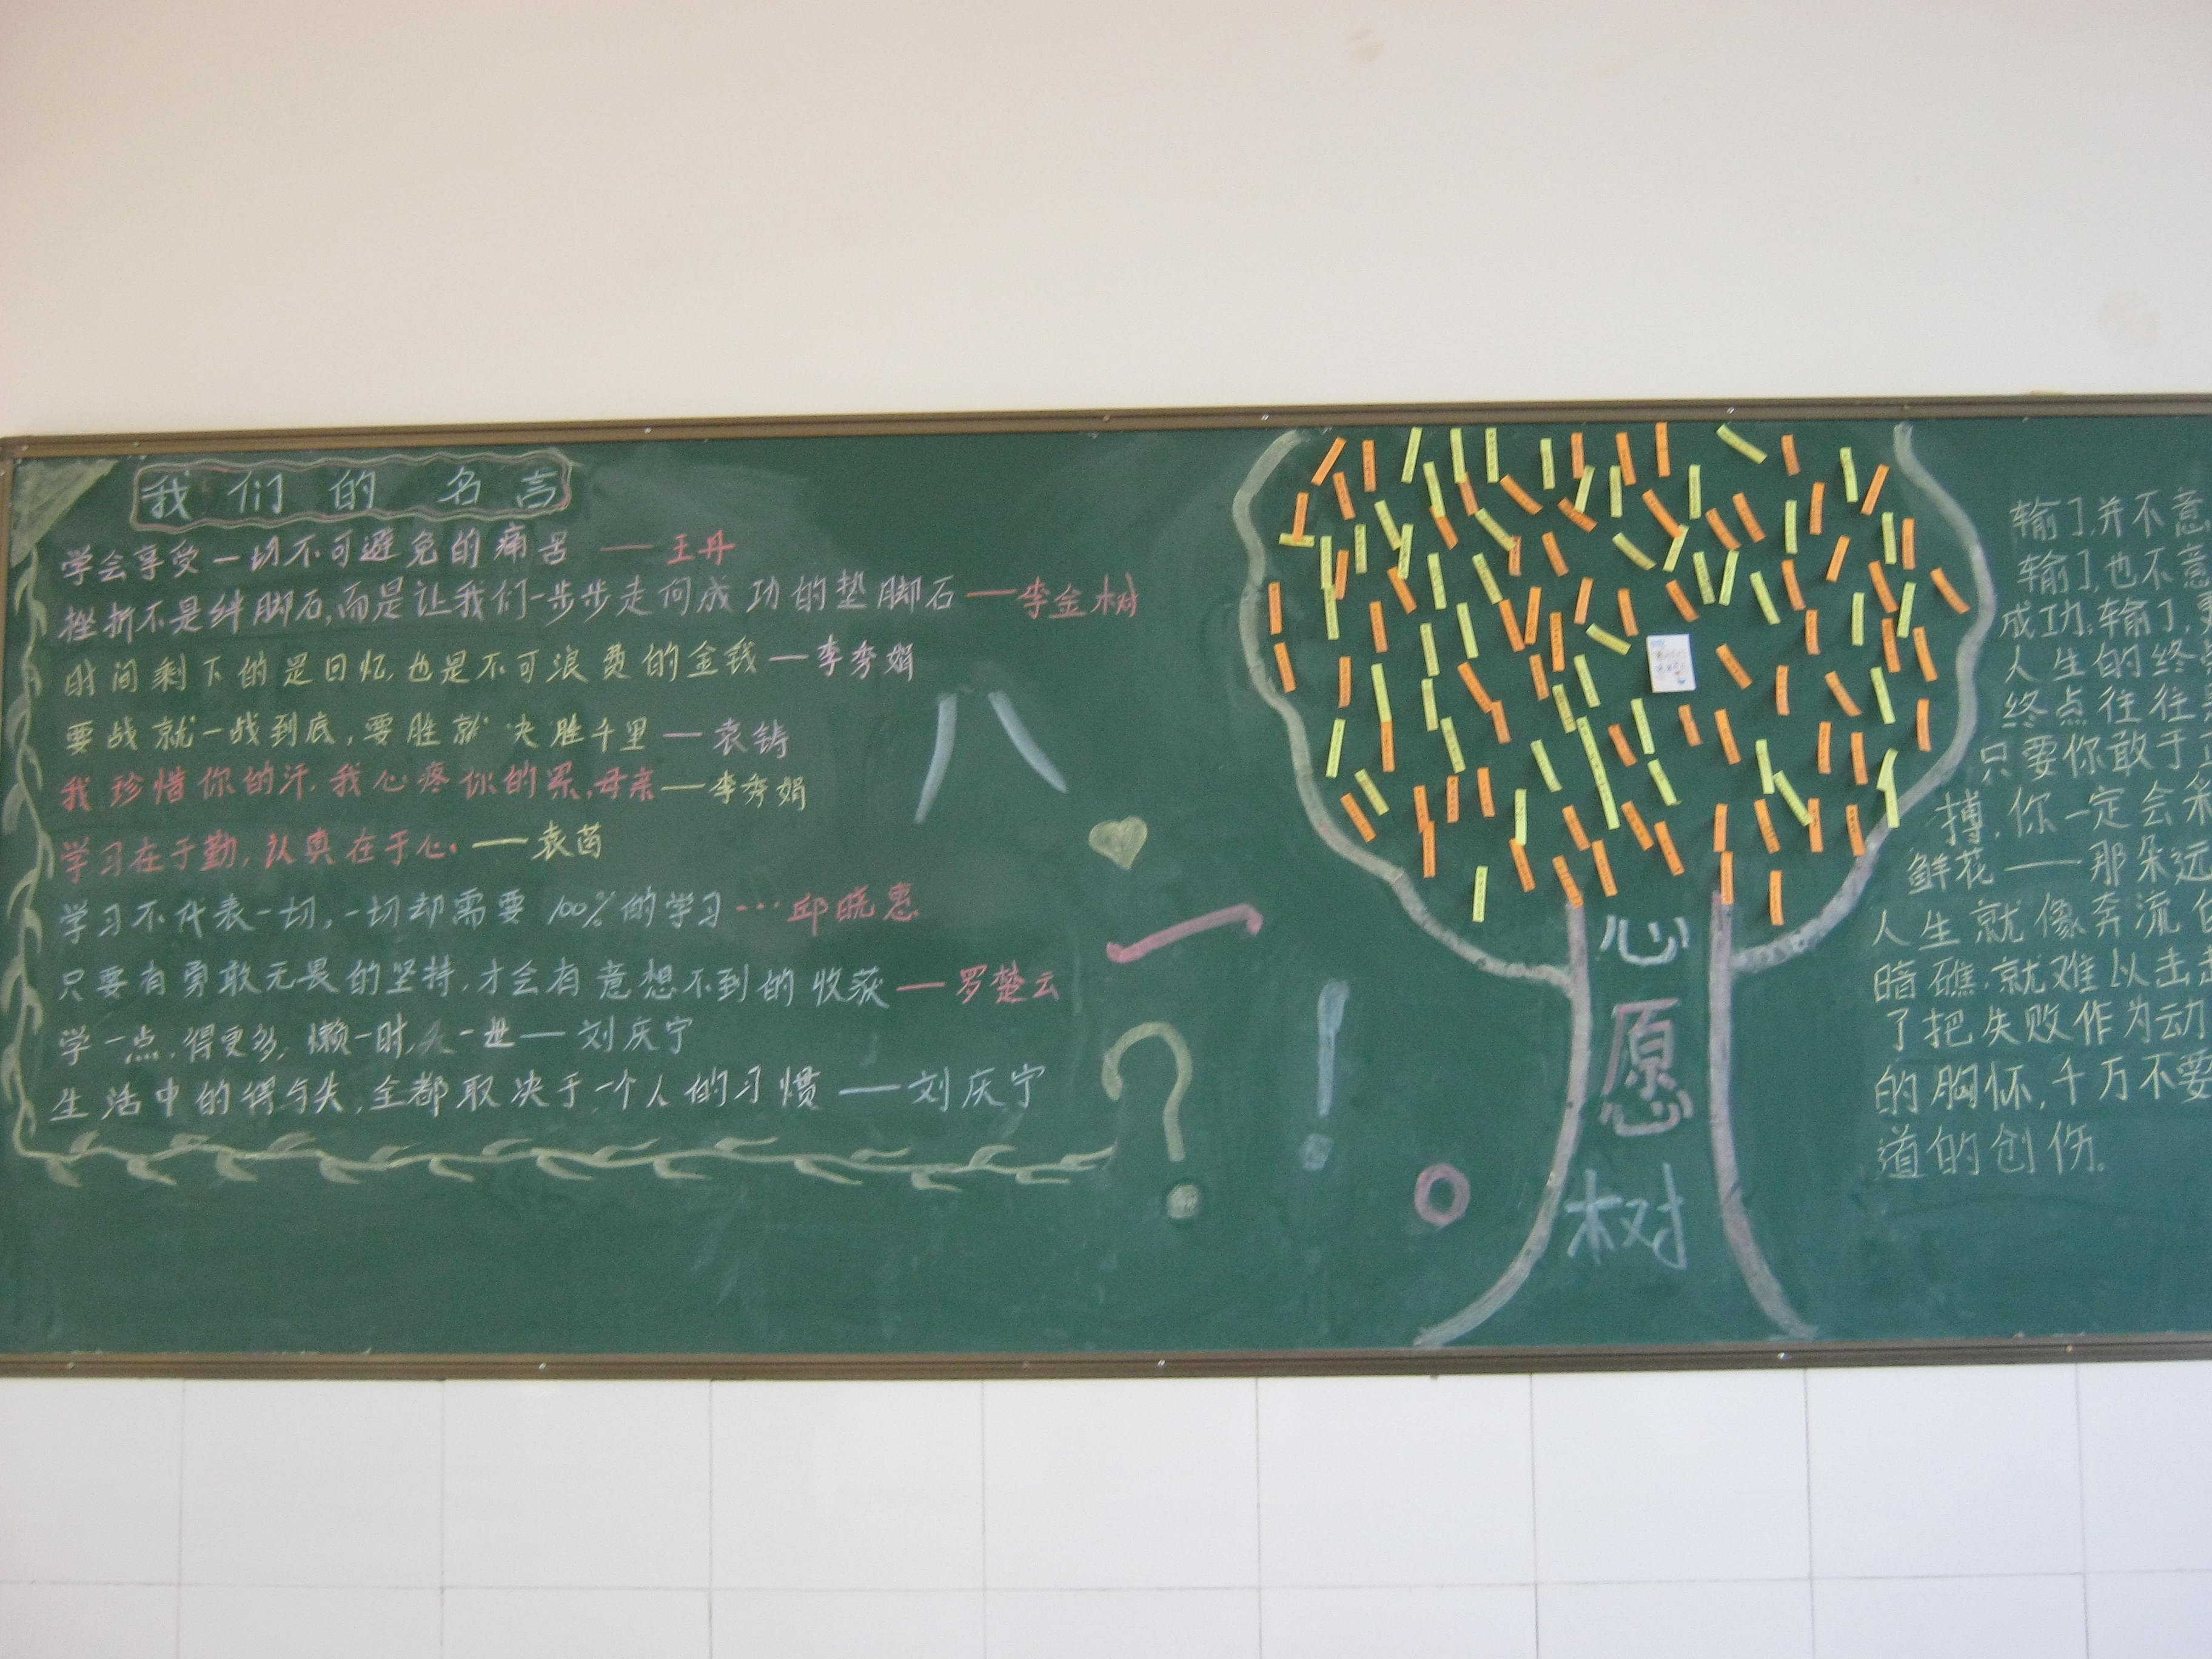 我们的名言
学会享受一切不可避免的痛苦 —— 王丹
挫折不是绊脚石,而是让我们一步步走向成功的垫脚石 —— 李金树
时间剩下的是回忆,也是不可浪费的金钱 — 李秀娟
要战就一战到底,要胜就决胜千里 — 袁铸
我珍惜你的汗,我心疼你的累,母亲 — 李秀娟
学习在于勤,认真在于心。—— 袁茵
学习不代表一切,一切却需要100%的学习 … 邱晓惠
只要有勇敢无畏的坚持,才会有意想不到的收获 — 罗楚云
学一点,得更多,懒一时,一世 — 刘庆宁
生活中的得与失,全都取决于一个人的习惯 —— 刘庆宁
八
一
?
!
心
愿
树
输了,并不意
输了,也不意
成功;输了,
人生的终点
终点往往
只要你敢于
搏,你一定会采
鲜花——那朵远
人生就像奔流
暗礁,就难以击
了把失败作为动
的胸怀,千万不要
道的创伤。